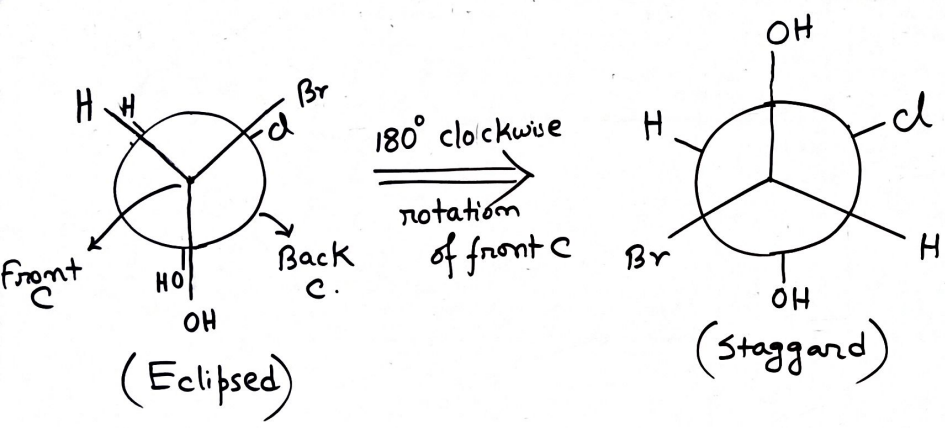 H H Br
Cl
Front
C
HO
OH
Back
C.
(Eclipsed)
180° clockwise
rotation
of front C
OH
H Cl
Br H
OH
(Staggard)